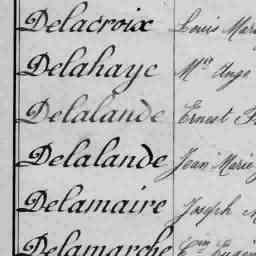 Delacroix Louis Mar
Delahaye Mie Ange
Delalande Ernest F
Delalande Jean Marie
Delamaire Joseph M
Delamarche Eugèn